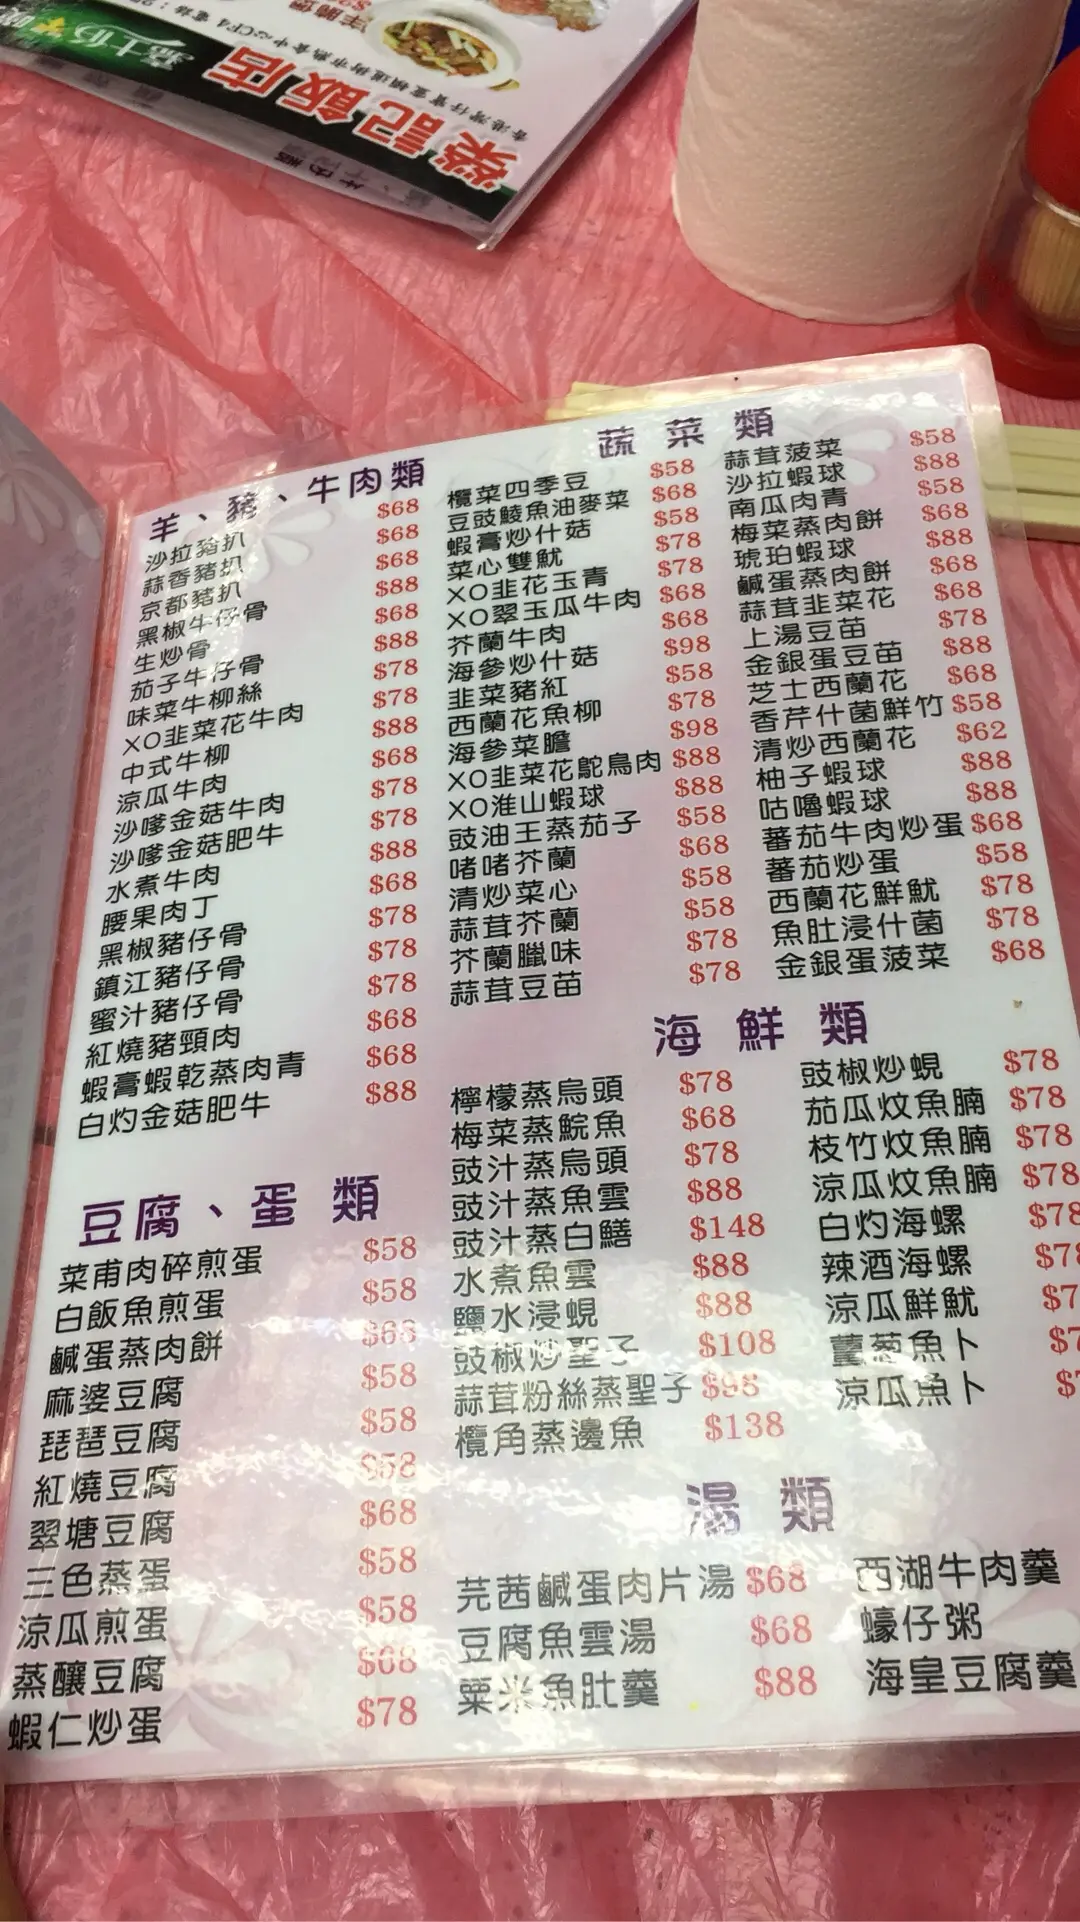 榮記飯店
香港灣仔寶靈頓道街市熟食中心CF4
羊、豬、牛肉類
沙拉豬扒 $68
蒜香豬扒 $68
京都豬扒 $68
黑椒牛仔骨 $88
生炒骨 $68
茄子牛仔骨 $88
味菜牛柳絲 $78
XO韭菜花牛肉 $78
中式牛柳 $88
涼瓜牛肉 $68
沙嗲金菇牛肉 $78
沙嗲金菇肥牛 $78
水煮牛肉 $88
腰果肉丁 $68
黑椒豬仔骨 $78
鎮江豬仔骨 $78
蜜汁豬仔骨 $78
紅燒豬頸肉 $68
蝦膏蝦乾蒸肉青 $68
白灼金菇肥牛 $88
豆腐、蛋類
菜甫肉碎煎蛋 $58
白飯魚煎蛋 $58
鹹蛋蒸肉餅 $68
麻婆豆腐 $58
琵琶豆腐 $58
紅燒豆腐 $58
翠塘豆腐 $68
三色蒸蛋 $58
涼瓜煎蛋 $58
蒸釀豆腐 $68
蝦仁炒蛋 $78
蔬菜類
欖菜四季豆 $58
豆豉鯪魚油麥菜 $68
蝦膏炒什菇 $58
菜心雙魷 $78
XO韭花玉青 $78
XO翠玉瓜牛肉 $68
芥蘭牛肉 $68
海參炒什菇 $98
韭菜豬紅 $58
西蘭花魚柳 $78
海參菜膽 $98
XO韭菜花鴕鳥肉 $88
XO淮山蝦球 $88
豉油王蒸茄子 $58
啫啫芥蘭 $68
清炒菜心 $58
蒜茸芥蘭 $58
芥蘭臘味 $78
蒜茸豆苗 $78
蒜茸菠菜 $58
沙拉蝦球 $88
南瓜肉青 $58
梅菜蒸肉餅 $68
琥珀蝦球 $88
鹹蛋蒸肉餅 $68
蒜茸韭菜花 $68
上湯豆苗 $78
金銀蛋豆苗 $88
芝士西蘭花 $68
香芹什菌鮮竹 $58
清炒西蘭花 $62
柚子蝦球 $88
咕嚕蝦球 $88
蕃茄牛肉炒蛋 $68
蕃茄炒蛋 $58
西蘭花鮮魷 $78
魚肚浸什菌 $78
金銀蛋菠菜 $68
海鮮類
檸檬蒸烏頭 $78
梅菜蒸鯇魚 $68
豉汁蒸烏頭 $78
豉汁蒸魚雲 $88
豉汁蒸白鱔 $148
水煮魚雲 $88
鹽水浸蜆 $88
豉椒炒聖子 $108
蒜茸粉絲蒸聖子 $98
欖角蒸邊魚 $138
豉椒炒蜆 $78
茄瓜炆魚腩 $78
枝竹炆魚腩 $78
涼瓜炆魚腩 $78
白灼海螺 $78
辣酒海螺 $78
涼瓜鮮魷 $7
薑葱魚卜 $7
涼瓜魚卜 $7
湯類
芫茜鹹蛋肉片湯 $68
豆腐魚雲湯 $68
粟米魚肚羹 $88
西湖牛肉羹
蠔仔粥
海皇豆腐羹